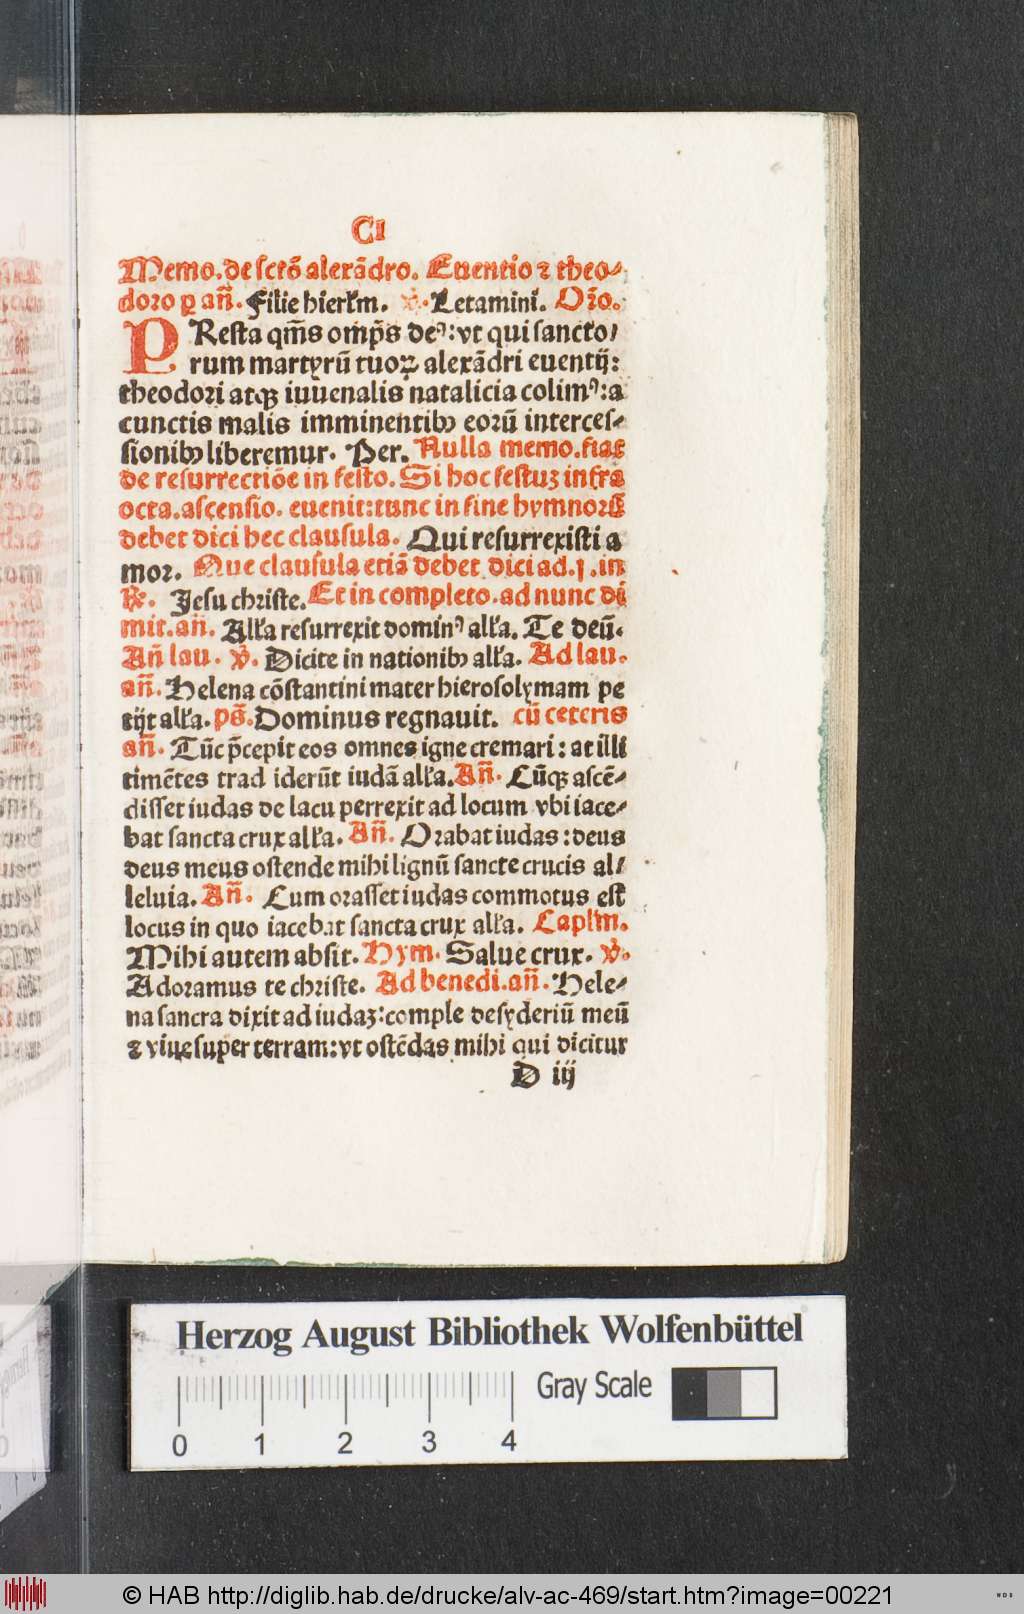 CI
Memo. de sctõ alexãdro. Euentio ⁊ theo-
doro p añ. Filie hierł'm. ꝟ. Letamini. Oro.
PResta qm̃s omp̃s deꝰ: vt qui sancto/
rum martyrũ tuoꝝ alexãdri euentij:
theodori atqꝫ iuuenalis natalicia colimꝰ: a
cunctis malis imminentibꝫ eorũ interces-
sionibꝫ liberemur. Per. Nulla memo. fiat
de resurrectiõe in festo. Si hoc festuȝ infra
octa. ascensio. euenit: tunc in fine hymnorũ
debet dici hec clausula. Qui resurrexisti a
mor. Que clausula etiã debet dici ad .j. in
℟. Jesu christe. Et in completo. ad nunc di
mit. añ. Alła resurrexit dominꝰ alła. Te deũ.
Añ lau. ꝟ. Dicite in nationibꝫ alła. Ad lau.
añ. Helena cõstantini mater hierosolymam pe
tijt alła. ps̃. Dominus regnauit. cũ ceteris
añ. Tũc p̃cepit eos omnes igne cremari: at illi
timẽtes trad iderũt iudã alła. Añ. Cũqꝫ ascẽ-
disset iudas de lacu perrexit ad locum vbi iace-
bat sancta crux alła. Añ. Orabat iudas: deus
deus meus ostende mihi lignũ sancte crucis al/
leluia. Añ. Cum orasset iudas commotus est
locus in quo iacebat sancta crux alła. Capłm.
Mihi autem absit. Hym. Salue crux. ꝟ.
Adoramus te christe. Ad benedi. añ. Hele-
na sancta dixit ad iudaȝ: comple desyderiũ meũ
⁊ viue super terram: vt ostẽdas mihi qui dicitur
D iij
Herzog August Bibliothek Wolfenbüttel
Gray Scale
0 1 2 3 4
© HAB http://diglib.hab.de/drucke/alv-ac-469/start.htm?image=00221